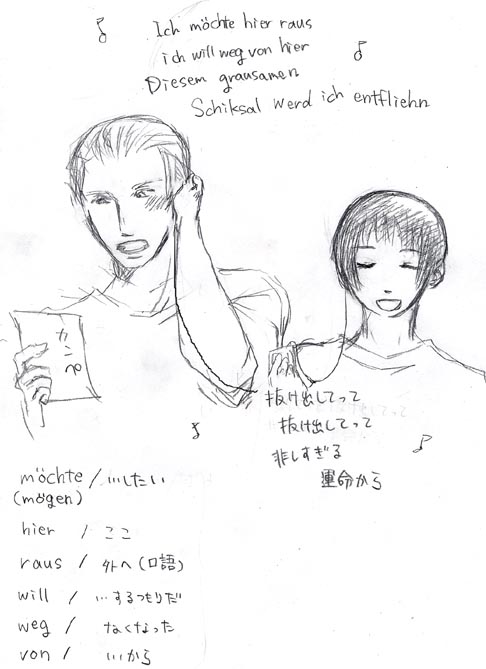 Ich möchte hier raus
ich will weg von hier
Diesem grausamen
Schiksal werd ich entfliehn
カンペ
抜け出してって
抜け出してって
悲しすぎる
運命から
möchte / …したい
(mögen)
hier / ここ
raus / 外へ(口語)
will / …するつもりだ
weg / なくなった
von / …から